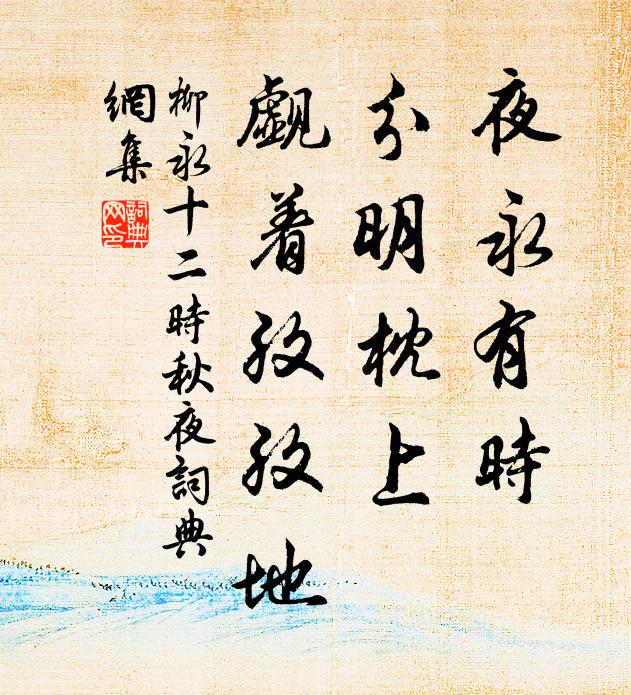 夜永有時
分明枕上
觑着孜孜地
柳永十二時秋夜詞典
網集
詞典
网印